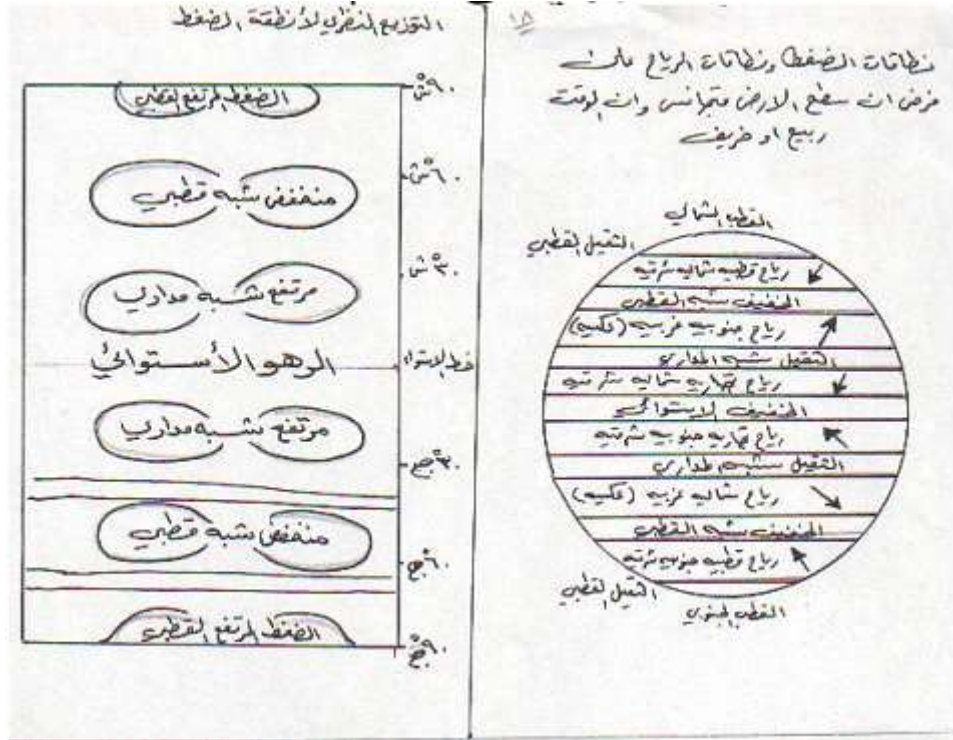 ١٨
نطاقات الضغط ونطاقات الرياح على
فرض ان سطح الارض متجانس وان الوقت
ربيع او خريف
القطب الشمالي
الثقيل القطبي
رياح قطبيه شماليه شرقيه
الخفيف شبه القطبي
رياح جنوبيه غربيه (عكسيه)
الثقيل شبه المداري
رياح تجاريه شماليه شرقيه
الخفيف الاستوائي
رياح تجاريه جنوبيه شرقيه
الثقيل شبه المداري
رياح شماليه غربيه (عكسيه)
الخفيف شبه القطبي
رياح قطبيه جنوبيه شرقيه
الثقيل القطبي
القطب الجنوبي
التوزيع النظري لأنظمة الضغط
٩٠°ش
الضغط المرتفع القطبي
٦٠°ش
منخفض شبه قطبي
٣٠°ش
مرتفع شبه مداري
خط الاستواء
الرهو الأستوائي
مرتفع شبه مداري
٣٠°ج
منخفض شبه قطبي
٦٠°ج
الضغط المرتفع القطبي
٩٠°ج